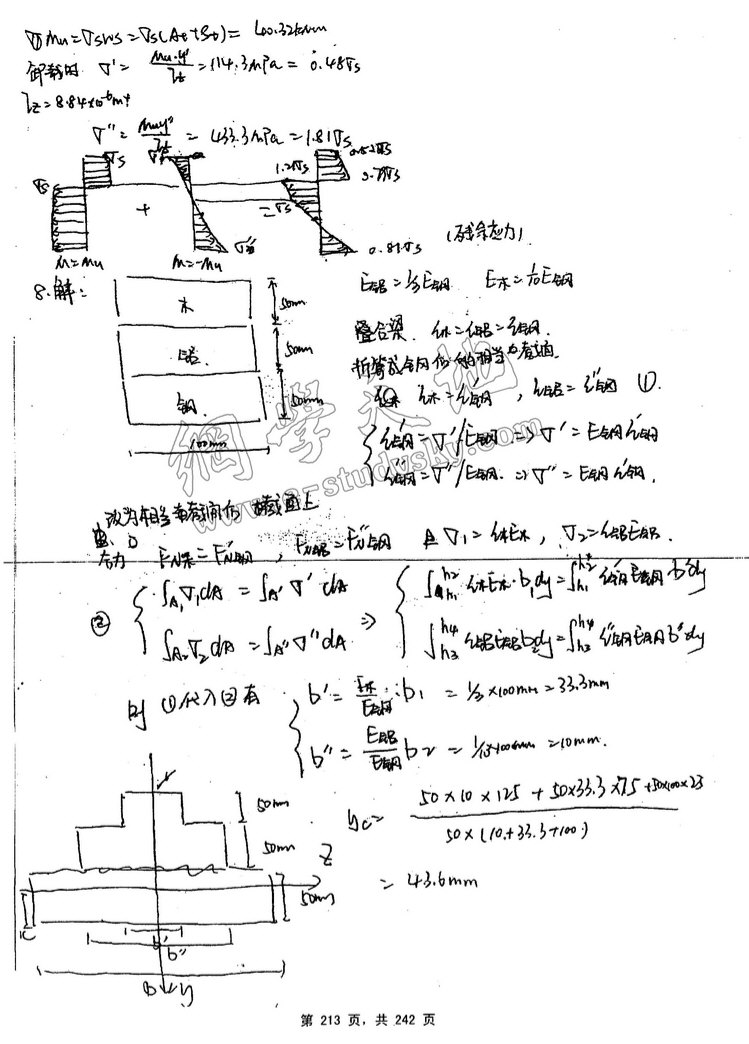 ① Mu=σsWs=σs(At+St)= 400.32kNm
卸载时 σ'= Mu·y'/Iz =114.3MPa= 0.48σs
Iz=8.84×10⁻⁶m⁴
σ''= Mu·y''/Iz = 433.3MPa=1.81σs
σs σs σ' 1.21σs 0.52σs
0.79σs
+ = σs
σ'' 0.81σs (残余应力)
M=Mu M=-Mu
8.解:
木 50mm
铝 50mm
钢 50mm
100mm
E铝=1/3E钢 E木=1/10E钢
叠合梁 ε木=ε铝=ε钢.
折算成全钢的相当截面
ε木=ε'钢 , ε铝=ε''钢 ①.
ε'钢=σ'/E钢 => σ'=E钢ε'钢
ε''钢=σ''/E钢 => σ''=E钢ε''钢.
改为相当截面的 截面上
内力 FN木=F'N钢 , FN铝=F''N钢 且 σ1=εE木, σ2=ε铝E铝.
② ∫A1 σ1dA = ∫A' σ' dA
∫A2 σ2dA =∫A'' σ''dA =>
∫h1^h2 ε木E木·b1dy=∫h1^h2 ε'钢E钢b'dy
∫h3^h4 ε铝E铝b2dy=∫h3^h4 ε''钢E钢b''dy
则 ①代入②有
b'= E木/E钢·b1 = 1/3×100mm=33.3mm
b''= E铝/E钢 b2 = 1/10×100mm=10mm.
50mm
50mm
50mm
Z
C
b'
b''
B
y
yc= 50×10×125 + 50×33.3×75+50×100×25 / 50×(10+33.3+100)
= 43.6mm
網學天地
www.e-studysky.com
第 213 页，共 242 页